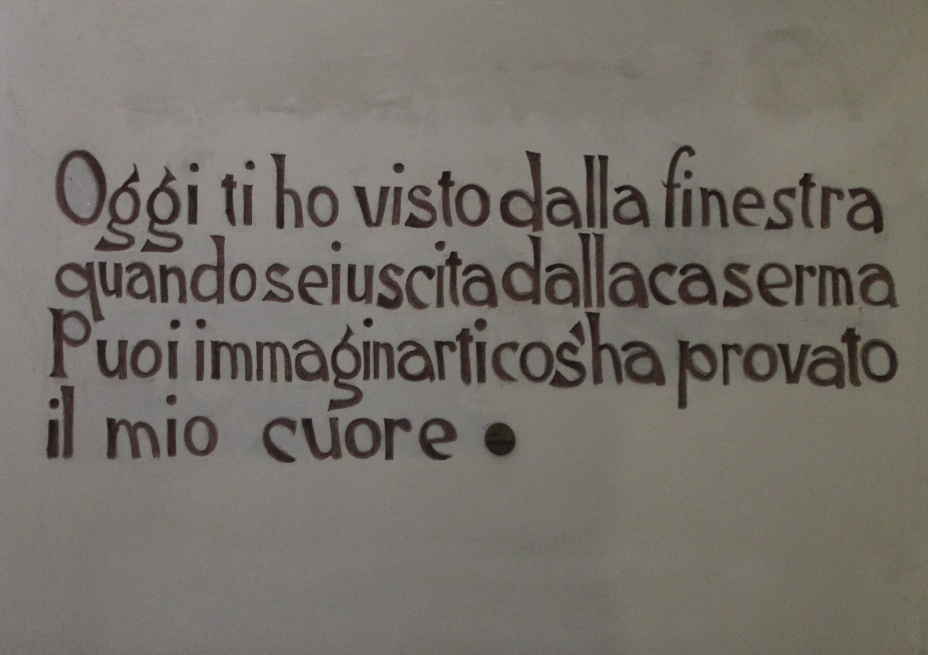 Oggi ti ho visto dalla finestra
quando sei uscita dalla caserma
Puoi immaginarti cos'ha provato
il mio cuore